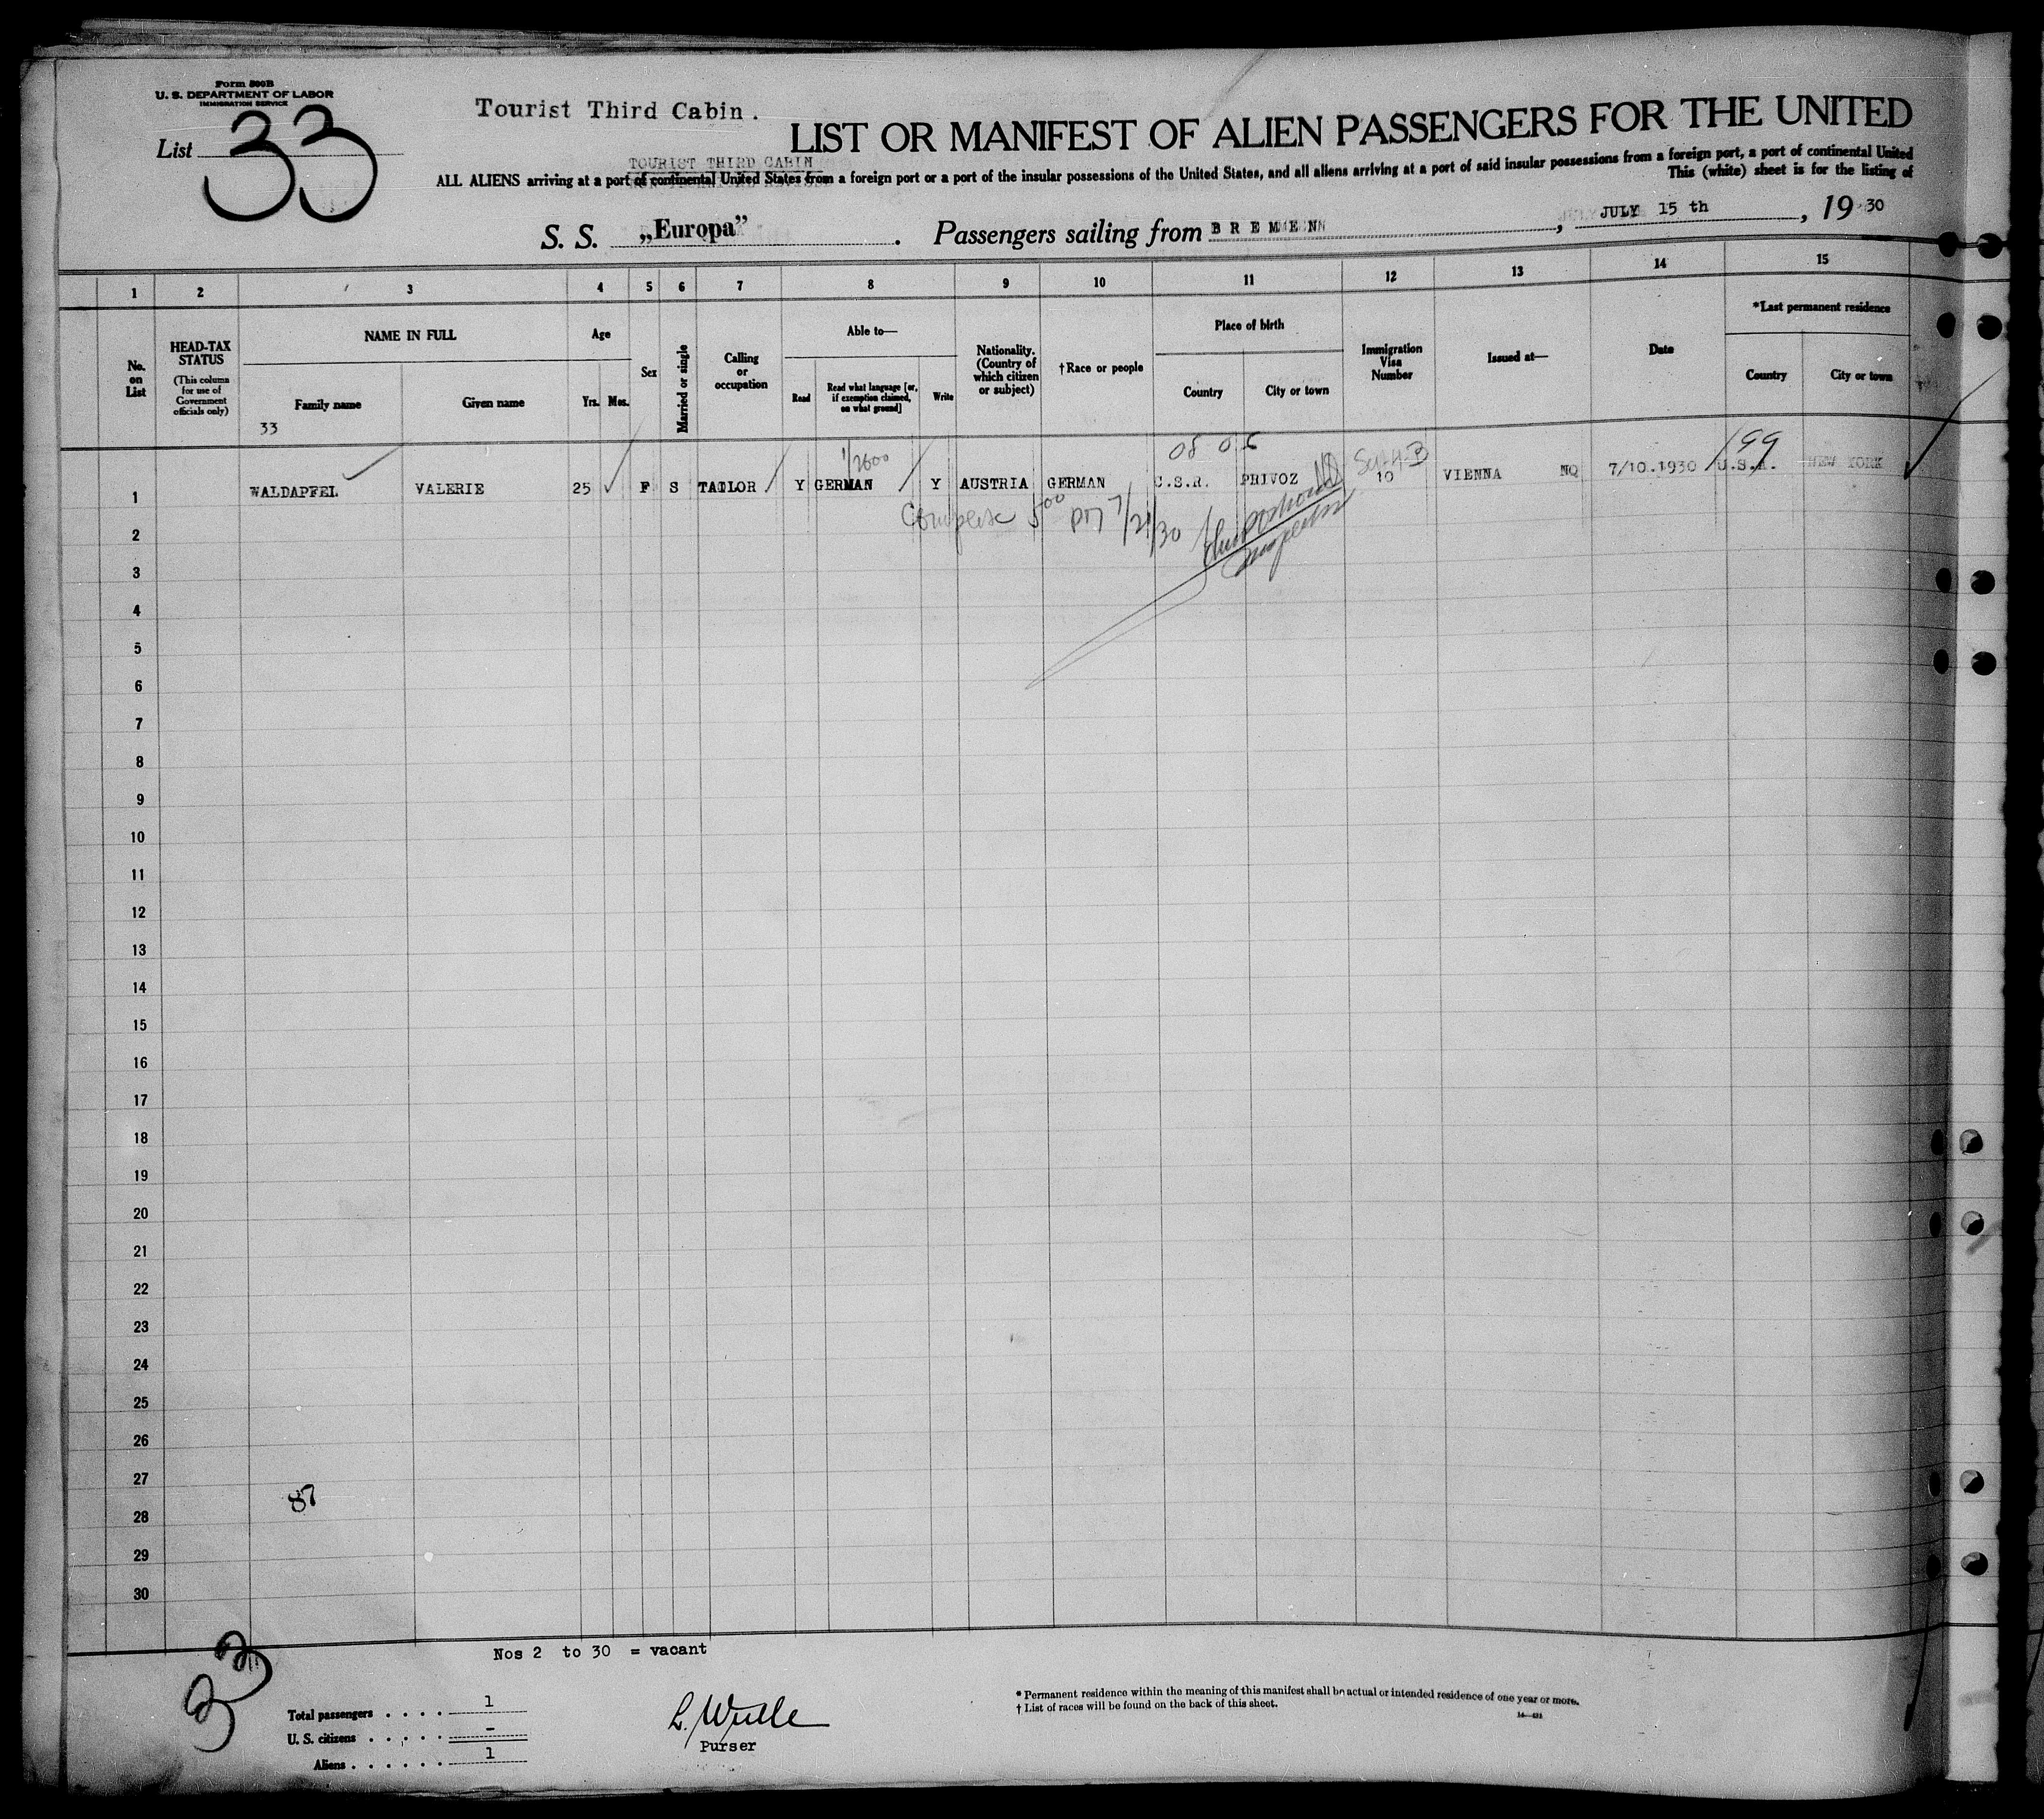 Form 500B
U. S. DEPARTMENT OF LABOR
IMMIGRATION SERVICE
List 33
Tourist Third Cabin.
LIST OR MANIFEST OF ALIEN PASSENGERS FOR THE UNITED
TOURIST THIRD CABIN
ALL ALIENS arriving at a port of continental United States from a foreign port or a port of the insular possessions of the United States, and all aliens arriving at a port of said insular possessions from a foreign port, a port of continental United
This (white) sheet is for the listing of
S. S. „Europa” . Passengers sailing from BREMEN , JULY 15 th , 19 30
1 2 3 4 5 6 7 8 9 10 11 12 13 14 15
No. on List
HEAD-TAX STATUS
(This column for use of Government officials only)
NAME IN FULL
Family name
Given name
33
Age
Yrs. Mos.
Sex
Married or single
Calling or occupation
Able to—
Read
Read what language [or, if exemption claimed, on what ground]
Write
Nationality. (Country of which citizen or subject)
†Race or people
Place of birth
Country
City or town
Immigration Visa Number
Issued at—
Date
*Last permanent residence
Country
City or town
08 06
199
1/2600
Sec.4-B
1 WALDAPFEL VALERIE 25 F S TAILOR Y GERMAN Y AUSTRIA GERMAN C.S.R. PRIVOZ 10 VIENNA NQ 7/10.1930 U.S.A. NEW YORK
500 PM 7/21/30
Inspector
2
3
4
5
6
7
8
9
10
11
12
13
14
15
16
17
18
19
20
21
22
23
24
25
26
27
87
28
29
30
Nos 2 to 30 = vacant
33
Total passengers . . . . 1
U. S. citizens . . . . . –
Aliens . . . . . . 1
L. Wulle
Purser
* Permanent residence within the meaning of this manifest shall be actual or intended residence of one year or more.
† List of races will be found on the back of this sheet.